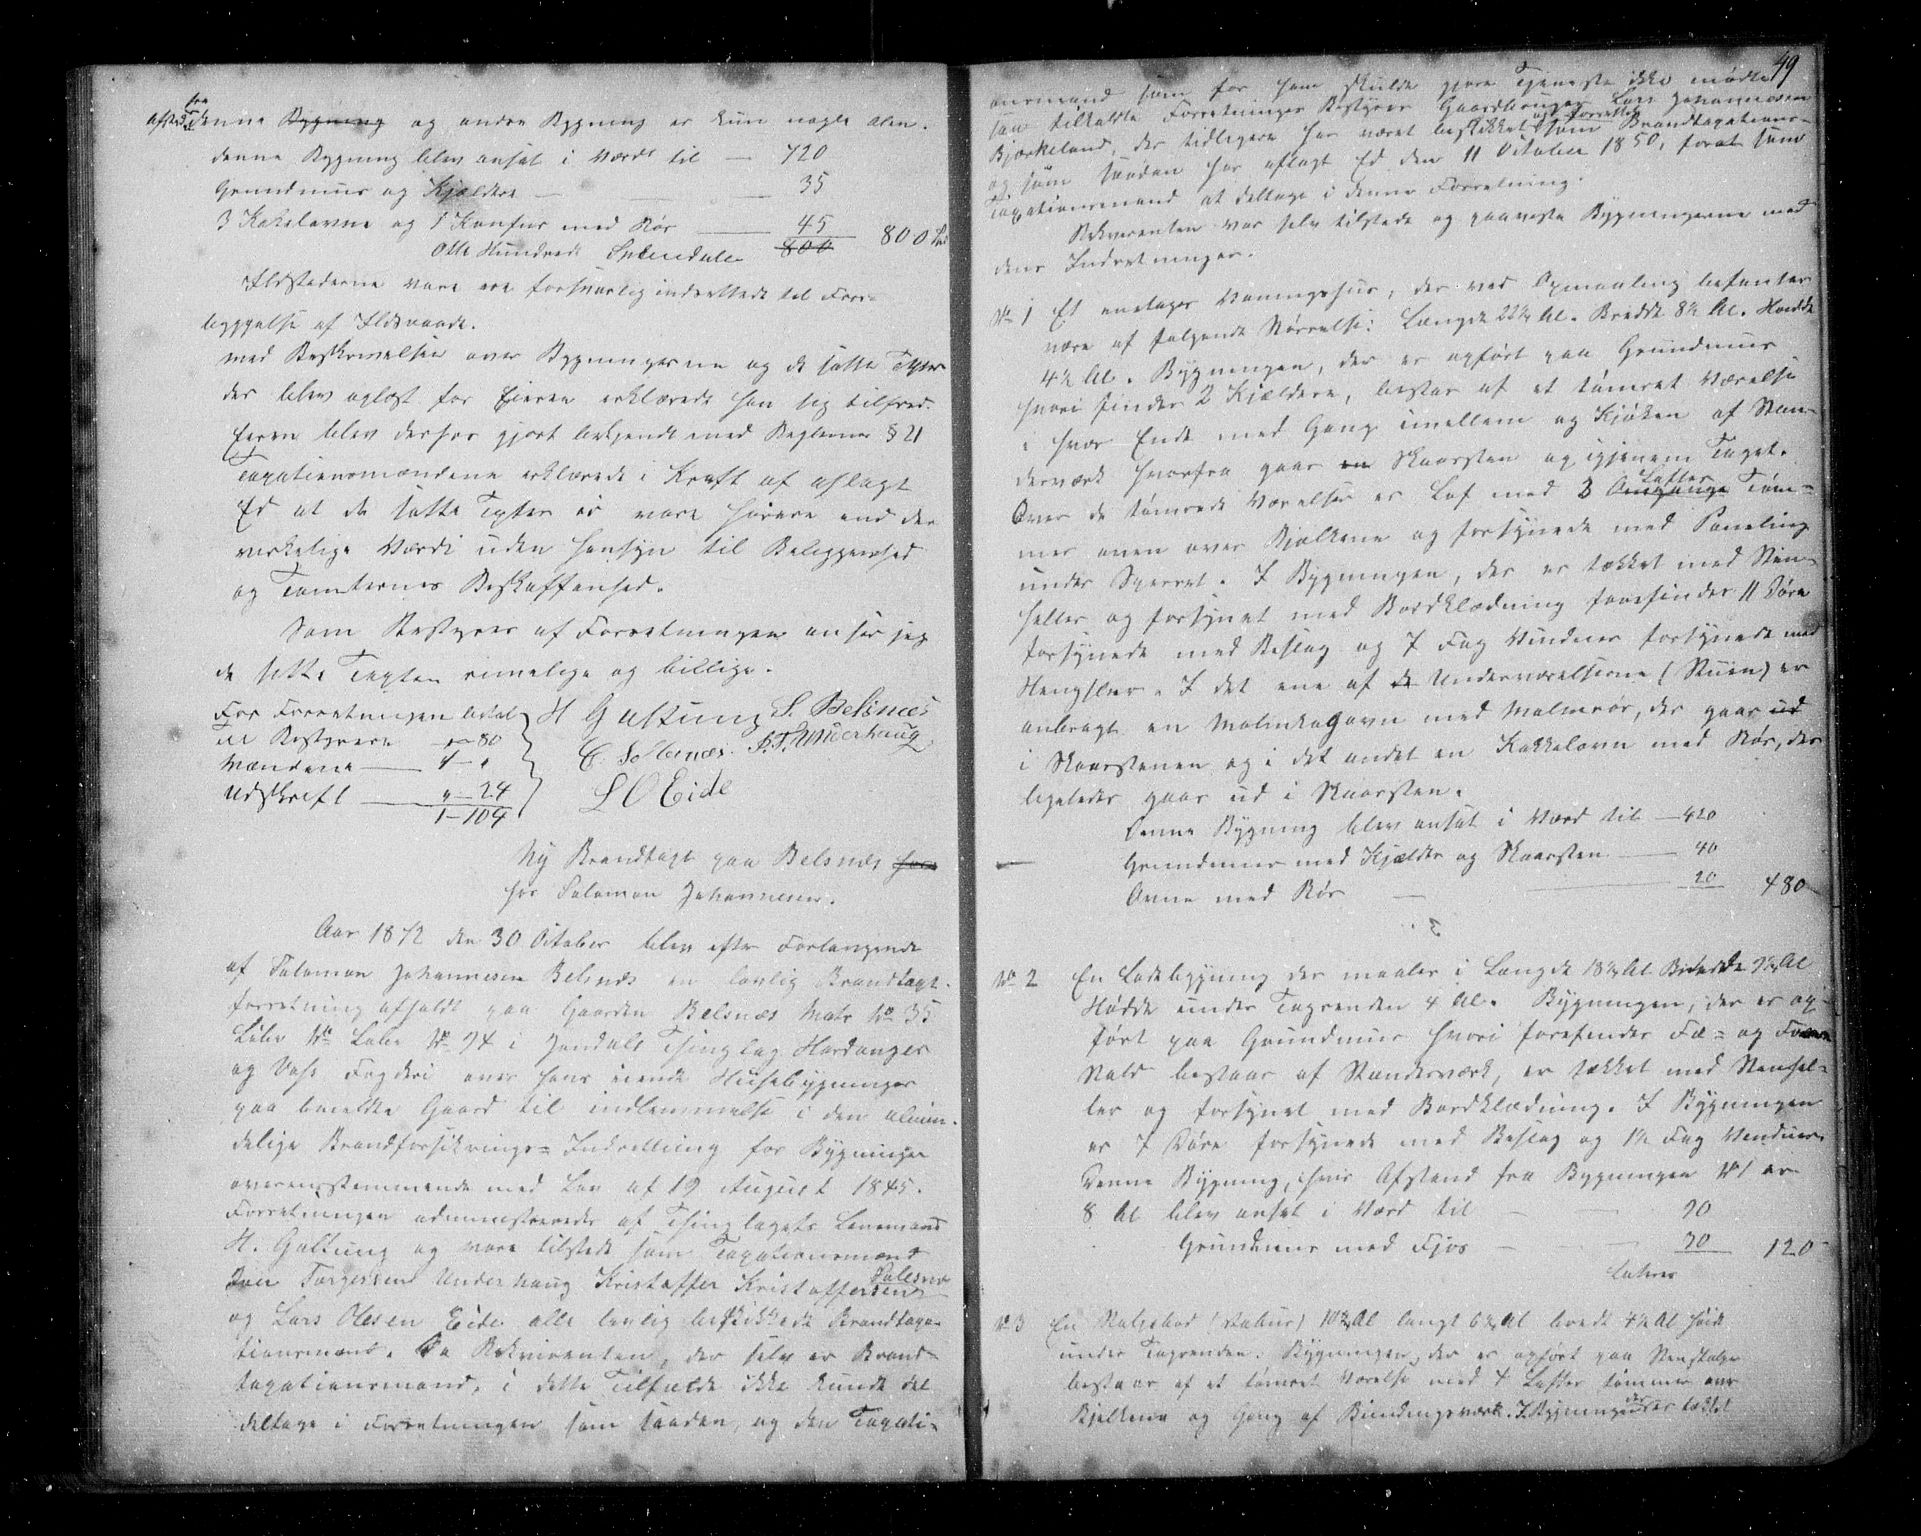 fra
Afstand denne Bygning og andre Bygning er kun nogle alen.
denne Bygning blev ansat i Værdi til — 720
Grundmuur og Kjeldere — 35
3 Kakelovne og 1 Komfur med Rør — 45
Otte Hundrede Speciedaler 800 800
Ildstederne vare forsvarlig indrettede til Fore-
byggelse af Ildsvaade.
med Beskrivelsen over Bygningerne og de satte Taxter
der blev oplæst for Eieren erklærede han sig tilfreds.
Eieren blev derhos gjort bekjendt med Reglerne § 21
Taxationsmændene erklærede i Kraft af aflagt
Ed at de satte Taxter ei vare høiere end den
virkelige Værdi uden Hensyn til Beliggenhed
og Tomternes Beskaffenhed.
Som Bestyrer af Forretningen anser jeg
de satte Taxter rimelige og billige.
For Forretningen betalt H Galtung S. Belsnæs
til Bestyreren — 80 C. Solesnæs. I. T. Underhaug
Mændene —
Udskrift — " — 24 L O Eide
1 — 104
Ny Brandtaxt paa Belsnæs hos
hos Salomon Johannesen.
Aar 1872 den 30 October blev efter Forlangende
af Salomon Johannesen Belsnæs en lovlig Brandtaxt-
forretning afholdt paa Gaarden Belsnæs Matr No 35
Løbe No 94 i Jondals Thinglag Hardanger
og Vos Fogderi over hans eiende Huusebygninger
paa bemeldte Gaard til indlemmelse i den almin-
delige Brandforsikrings-Indretning for Bygninger
overensstemmende med Lov af 19 August 1845.
Forretningen administreredes af Thinglagets Lensmand
H. Galtung og vare tilstede som Taxationsmænd
Iver Torgersen Underhaug Kristoffer Kristoffersen Solesnæs
og Lars Olesen Eide alle lovlig beskikkede Brandtaxa-
tionsmænd. Da Rekvirenten, der selv er Brand-
taxationsmand, i dette Tilfælde ikke kunde
deltage i Forretningen som saadan, og den Taxati-
49
onsmand som for ham skulde gjøre Tjeneste ikke mødte
saa tilkaldte Forretningens Bestyrer Gaardbruger Lars Johannesen
Bjørkeland, der tidligere har været beskikket som Brandtaxations-
og som saadan har aflagt Ed den 11 October 1850, forat som
Taxationsmand at deltage i denne Forretning.
Rekvirenten var selv tilstede og paaviste Bygningerne med
dens Indretninger.
No 1 Et enetages Vaaningshus, der ved Opmaaling befantes
være af følgende Størrelse: Længde 22½ Al. Bredde 8½ Al. Høide
4½ Al. Bygningen, der er opført paa Grundmuur
hvori findes 2 Kjældere, bestaar af et tømret Værelse
i hver Ende med Gang imellem og Kjøken af Stan-
derværk hvorfra gaar en Skorsten op igjenem Taget.
Over de tømrede Værelser er Lof med 3 Omgange Lofter Tøm-
mer oven over Bjelkerne og forsynede med Paneling
under Sperret. I Bygningen, der er tækket med Sten-
heller og forsynet med Bordklædning forefindes 11 Døre
forsynede med Beslag og 7 Fag Vinduer forsynede med
Hengsler. I det ene af de Underværelserne (Stuen) er
anbragt en Malmkagovn med Malmrør, der gaar ud
i Skorstenen og i det andet en Kakkelovn med Rør, der
ligeledes gaar ud i Skorsten.
Denne Bygning blev ansat i Værd til — 420
Grundmuur med Kjelder og Skorsten — 40
Ovne med Rør — 20 480
No 2 En Ladebygning der maaler i Længde 18½ Al Bredde 9½ Al
Høide under Tagrenden 4 Al. Bygningen, der er op-
ført paa Grundmuur hvori forefindes Fæ- og Faare
Stald bestaar af Standerværk, er tækket med Stenhel-
ler og forsynet med Bordklædning. I Bygningen
er 7 Døre forsynede med Beslag og 1½ Fag Vinduer.
Denne Bygning, hvis Afstand fra Bygningen No 1 er
8 Al blev ansat i Værd til — 90
Grundmuur med Fjøs — 30 120
No 3 En Matbod (Stabur) 10¾ Al langt 6¾ Al bredt 4½ Al høit
under Tagrenden. Bygningen, der er opført paa Stenstolper
bestaar af et tømret Værelse med 4 Lofter tømmer over
Bjelkerne og Gang af Bindingsværk. I Bygningen der er tækket